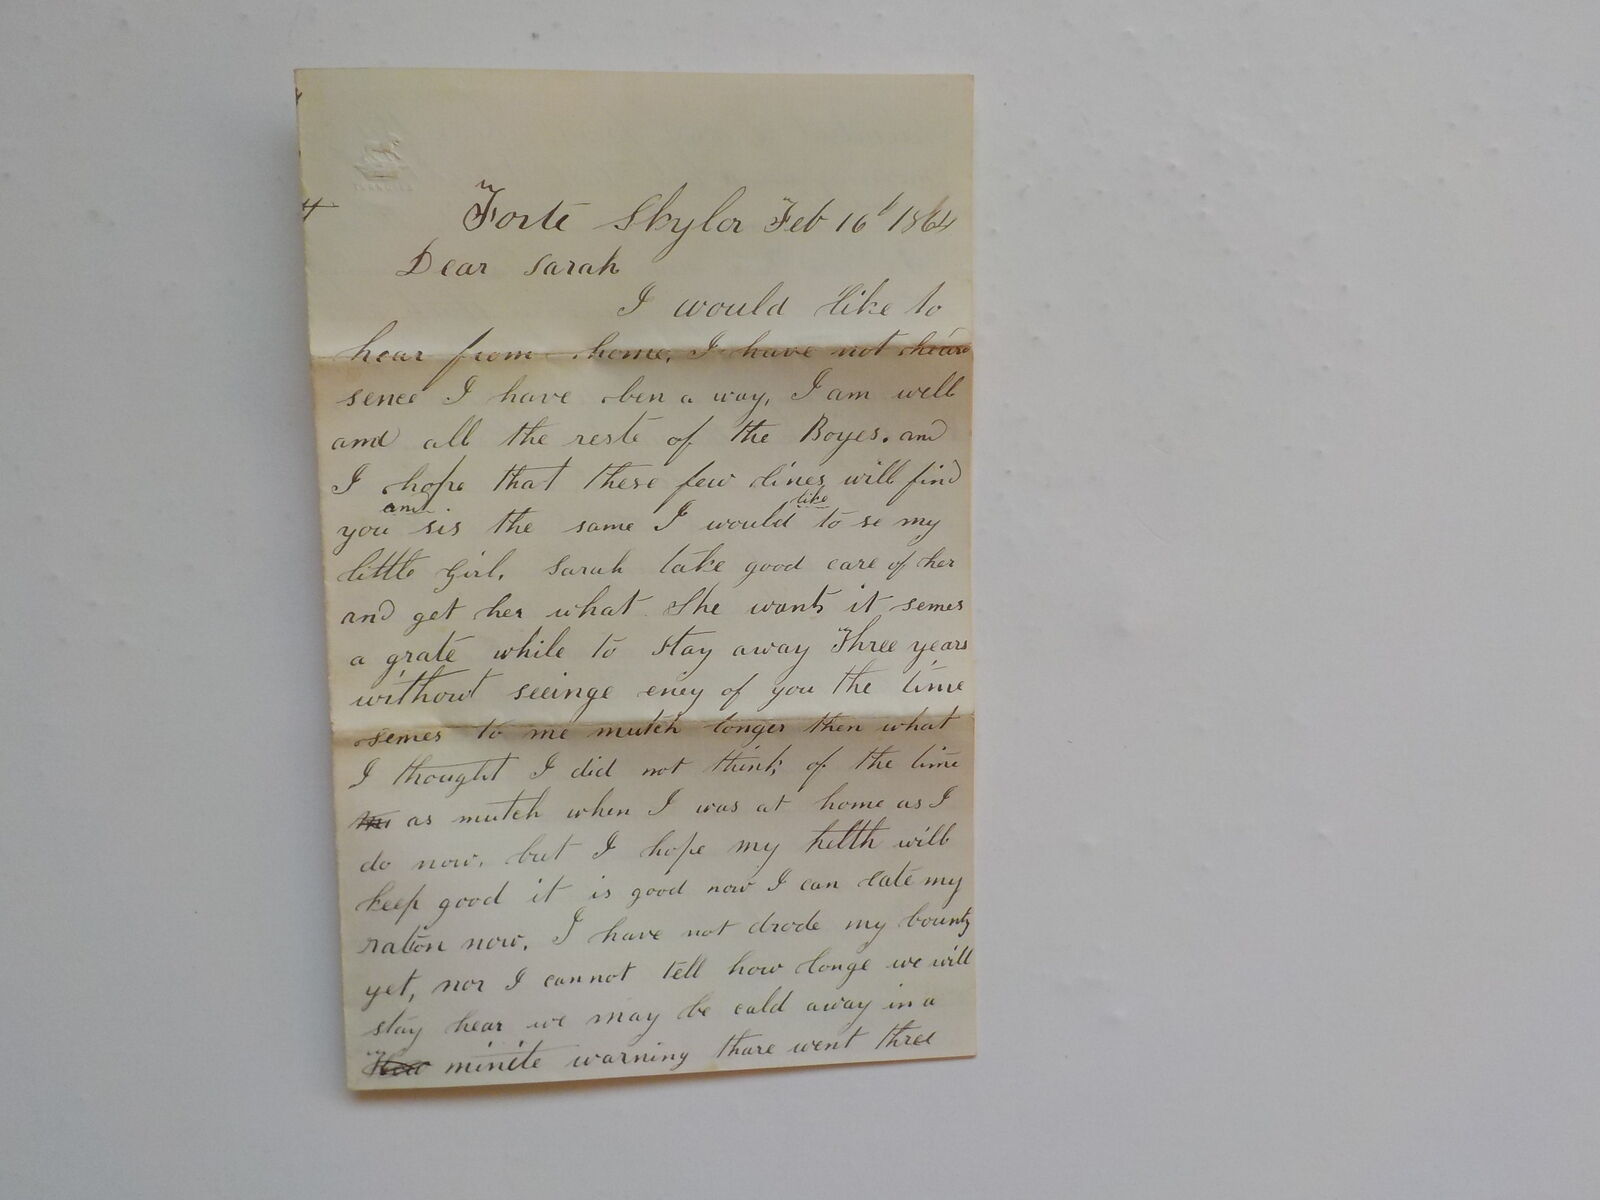 Forte Skylor Feb 16t 1864
Dear Sarah
I would like to
hear from home, I have not heard
sence I have ben a way, I am well
and all the reste of the Boyes. and
I hope that these few lines will find
you and sis the same I would like to se my
little Girl, Sarah take good care of her
and get her what She wants it semes
a grate while to stay away Three years
without seeinge eney of you the time
semes to me mutch longer then what
I thought I did not think of the time
as mutch when I was at home as I
do now, but I hope my helth will
keep good it is good now I can eate my
ration now, I have not drode my bounty
yet, nor I cannot tell how longe we will
stay hear we may be cald away in a
minite warning thare went three